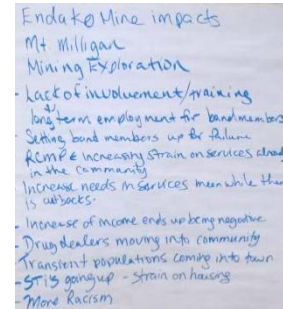 Endako Mine impacts
Mt. Milligan
Mining Exploration
- Lack of involvement/training
& long term employment for band members
- Setting band members up for failure
RCMP & increasing strain on services already
in the community
Increase needs in services meanwhile there
is cutbacks.
- Increase of income ends up being negative
- Drug dealers moving into community
Transient populations coming into town
- STI's going up - strain on housing
- More Racism